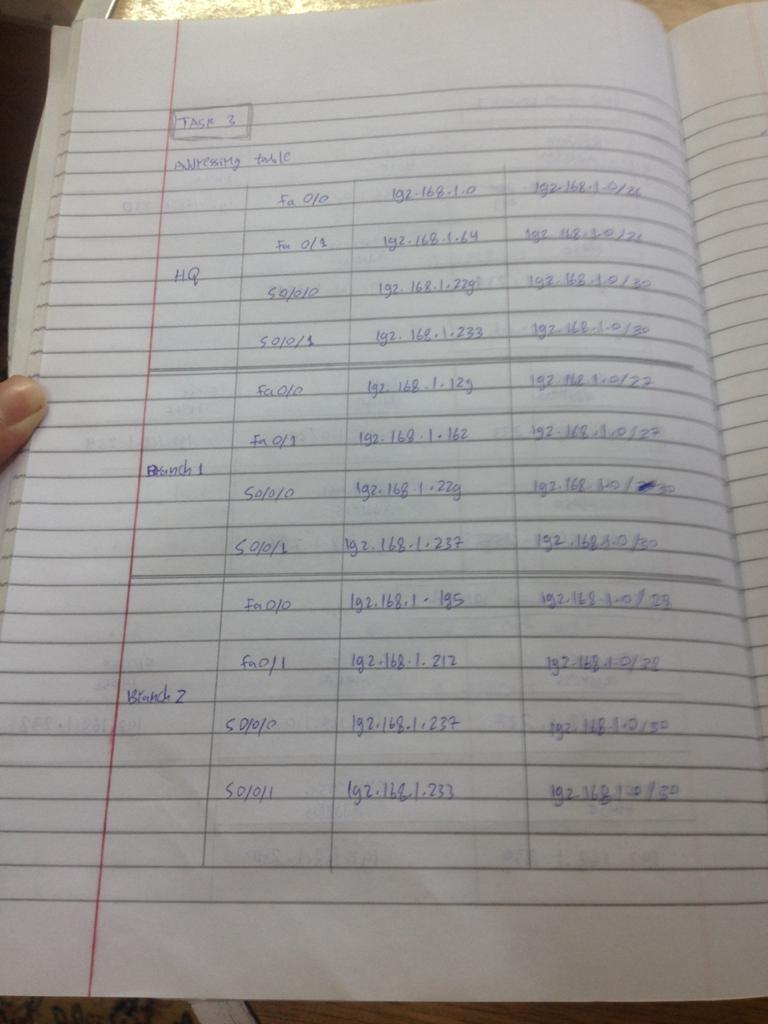 TASK 3
Addressing table
Fa 0/0 192.168.1.0 192.168.1.0/26
Fa 0/1 192.168.1.64 192.168.1.0/26
HQ
S0/0/0 192.168.1.229 192.168.1.0/30
S0/0/1 192.168.1.233 192.168.1.0/30
Fa0/0 192.168.1.129 192.168.1.0/27
Fa0/1 192.168.1.162 192.168.1.0/27
Branch 1
S0/0/0 192.168.1.229 192.168.1.0/30
S0/0/1 192.168.1.237 192.168.1.0/30
Fa0/0 192.168.1.195 192.168.1.0/28
Fa0/1 192.168.1.212 192.168.1.0/28
Branch 2
S0/0/0 192.168.1.237 192.168.1.0/30
S0/0/1 192.168.1.233 192.168.1.0/30